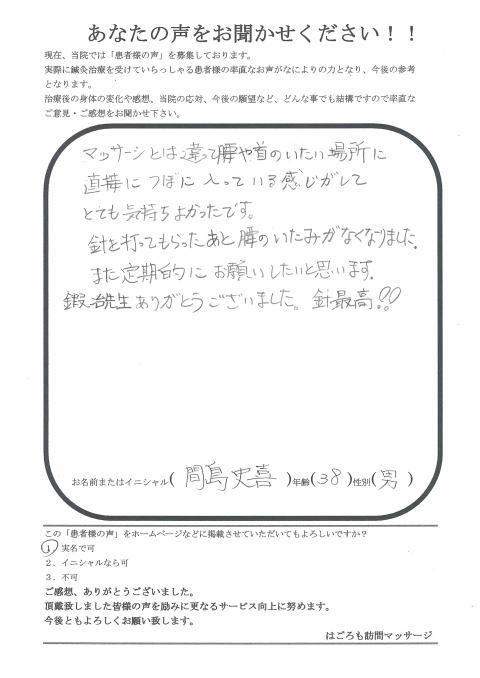 あなたの声をお聞かせください！！
現在、当院では「患者様の声」を募集しております。
実際に鍼灸治療を受けていらっしゃる患者様の率直なお声がなによりの力となり、今後の参考
となります。
治療後の身体の変化や感想、当院の応対、今後の願望など、どんな事でも結構ですので率直な
ご意見・ご感想をお聞かせ下さい。
マッサージとは違って腰や首のいたい場所に
直接につぼに入っている感じがして
とても気持ちよかったです。
針を打ってもらったあと腰のいたみがなくなりました。
また定期的にお願いしたいと思います。
鍛冶先生ありがとうございました。針最高!!
お名前またはイニシャル( 間島 史喜 )年齢(38)性別(男)
この「患者様の声」をホームページなどに掲載させていただいてもよろしいですか？
1．実名で可
2．イニシャルなら可
3．不可
ご感想、ありがとうございました。
頂戴致しました皆様の声を励みに更なるサービス向上に努めます。
今後ともよろしくお願い致します。
はごろも訪問マッサージ